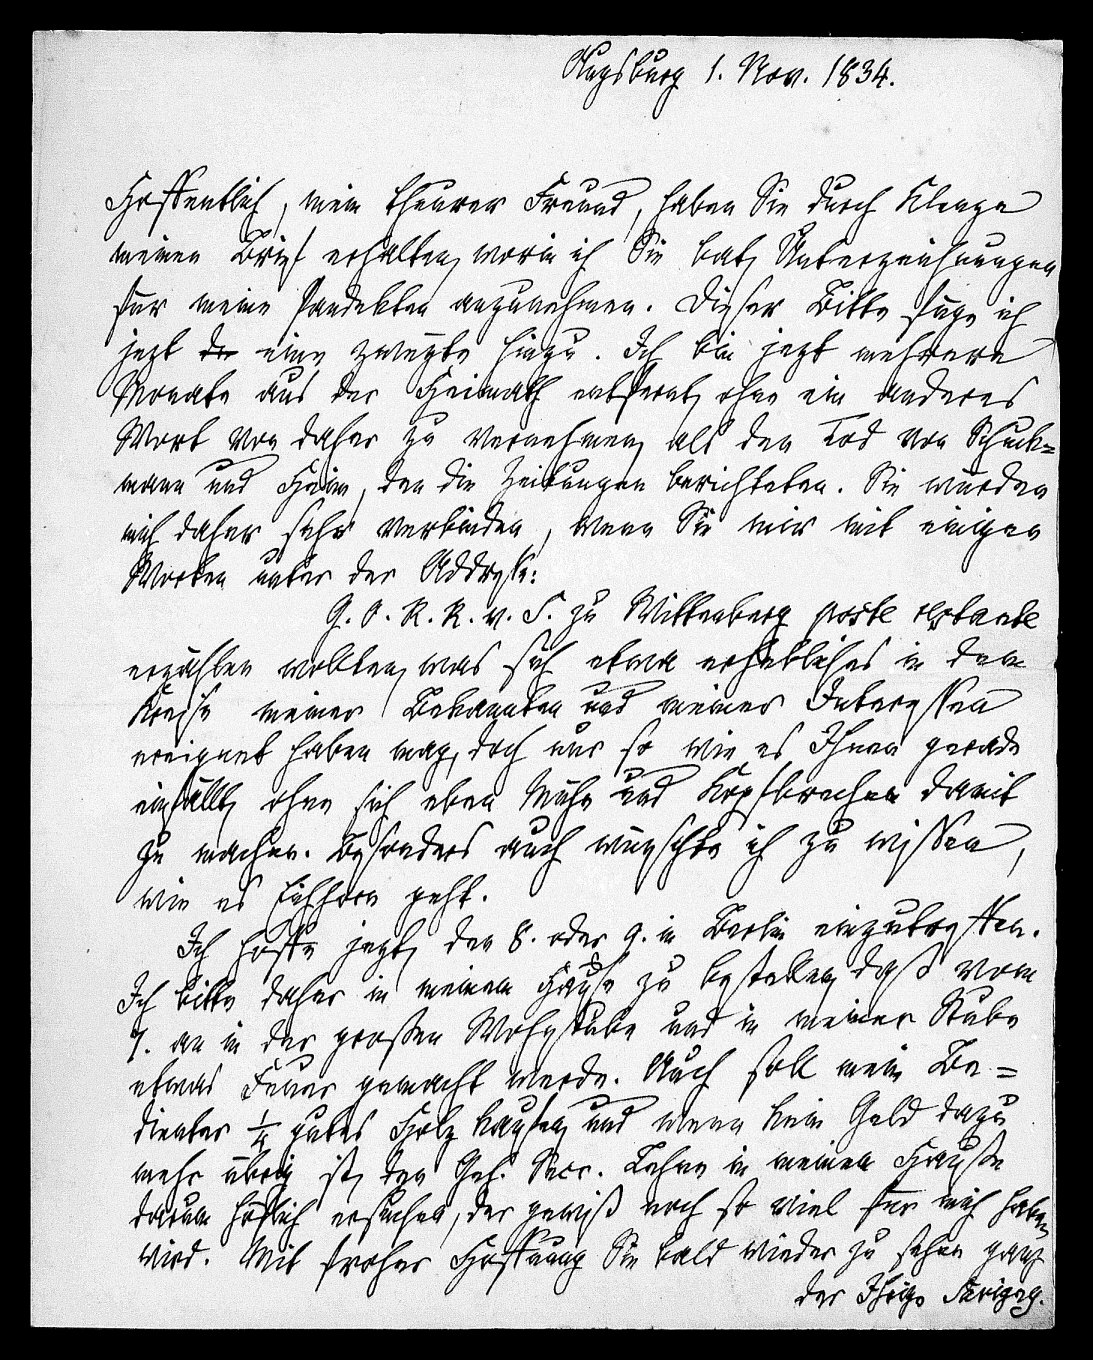 Augsburg 1. Nov. 1834.
Hoffentlich, mein theurer Freund, haben Sie durch Klenze
meinen Brief erhalten, worin ich Sie bat, Unterzeichnungen
für meine Pandekten anzunehmen. Dieser Bitte füge ich
jezt der eine zweyte hinzu. Ich bin jezt mehrere
Monate aus der Heimath entfernt, ohne ein anderes
Wort von daher zu vernehmen, als den Tod von Schuck=
mann und Heim, den die Zeitungen berichteten. Sie würden
mich daher sehr verbinden, wenn Sie mir mit einigen
Worten unter der Addresse:
G. O. R. R. v. S. zu Wittenberg poste restante
erzählen wollten, was sich etwa erhebliches in dem
Kreise meiner Bekannten und meiner Interessen
ereignet haben mag, doch nur so wie es Ihnen gerade
einfällt, ohne sich eben Mühe und Kopfbrechen damit
zu machen. Besonders auch wünschte ich zu wissen,
wie es Eichhorn geht.
Ich hoffe jezt, den 8. oder 9. in Berlin einzutreffen.
Ich bitte daher in meinem Hause zu bestellen, daß vom
7. an in der großen Wohnstube und in meiner Stube
etwas Feuer gemacht werde. Auch soll mein Be=
dienter 1/4 gutes Holz kaufen, und wenn kein Geld dazu
mehr übrig ist, den Geh. Secr. in meinem Hause
darum höflich ersuchen, der gewiß noch so viel für mich haben
wird. Mit froher Hoffnung Sie bald wieder zu sehen ganz
der Ihrige Savigny.